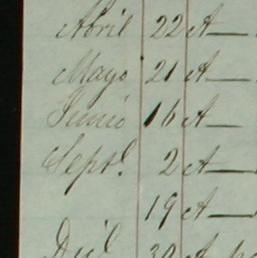 Abril 22 A—
Mayo 21 A—
Junio 16 A—
Septe. 2 A—
19 A—
Dic 30 A